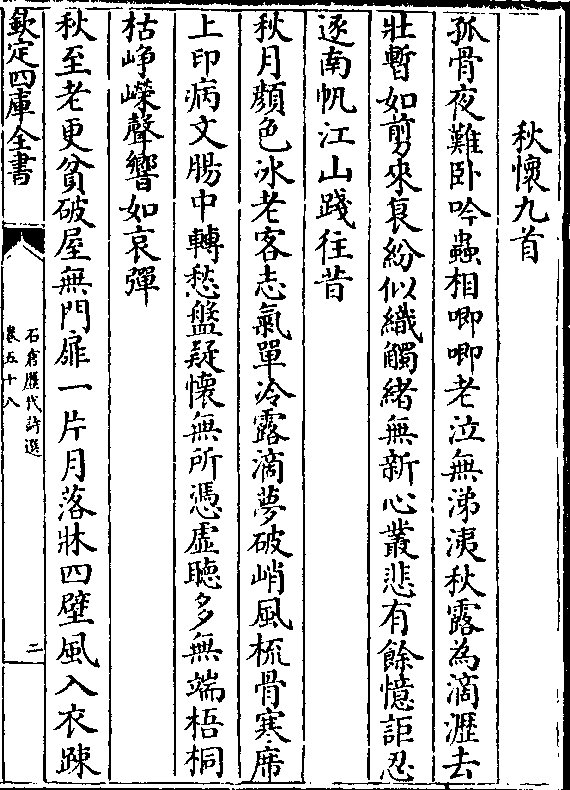 秋懷九首
孤骨夜難卧吟蟲相唧唧老泣無涕洟秋露為滴瀝去
壯暫如剪來衰紛似織觸緒無新心叢悲有餘憶詎忍
逐南帆江山踐往昔
秋月顔色冰老客志氣單冷露滴夢破峭風梳骨寒席
上印病文腸中轉愁盤疑懷無所憑虛聽多無端梧桐
枯崢嶸聲響如哀彈
秋至老更貧破屋無門扉一片月落牀四壁風入衣踈
欽定四庫全書
石倉歷代詩選
卷五十八
二